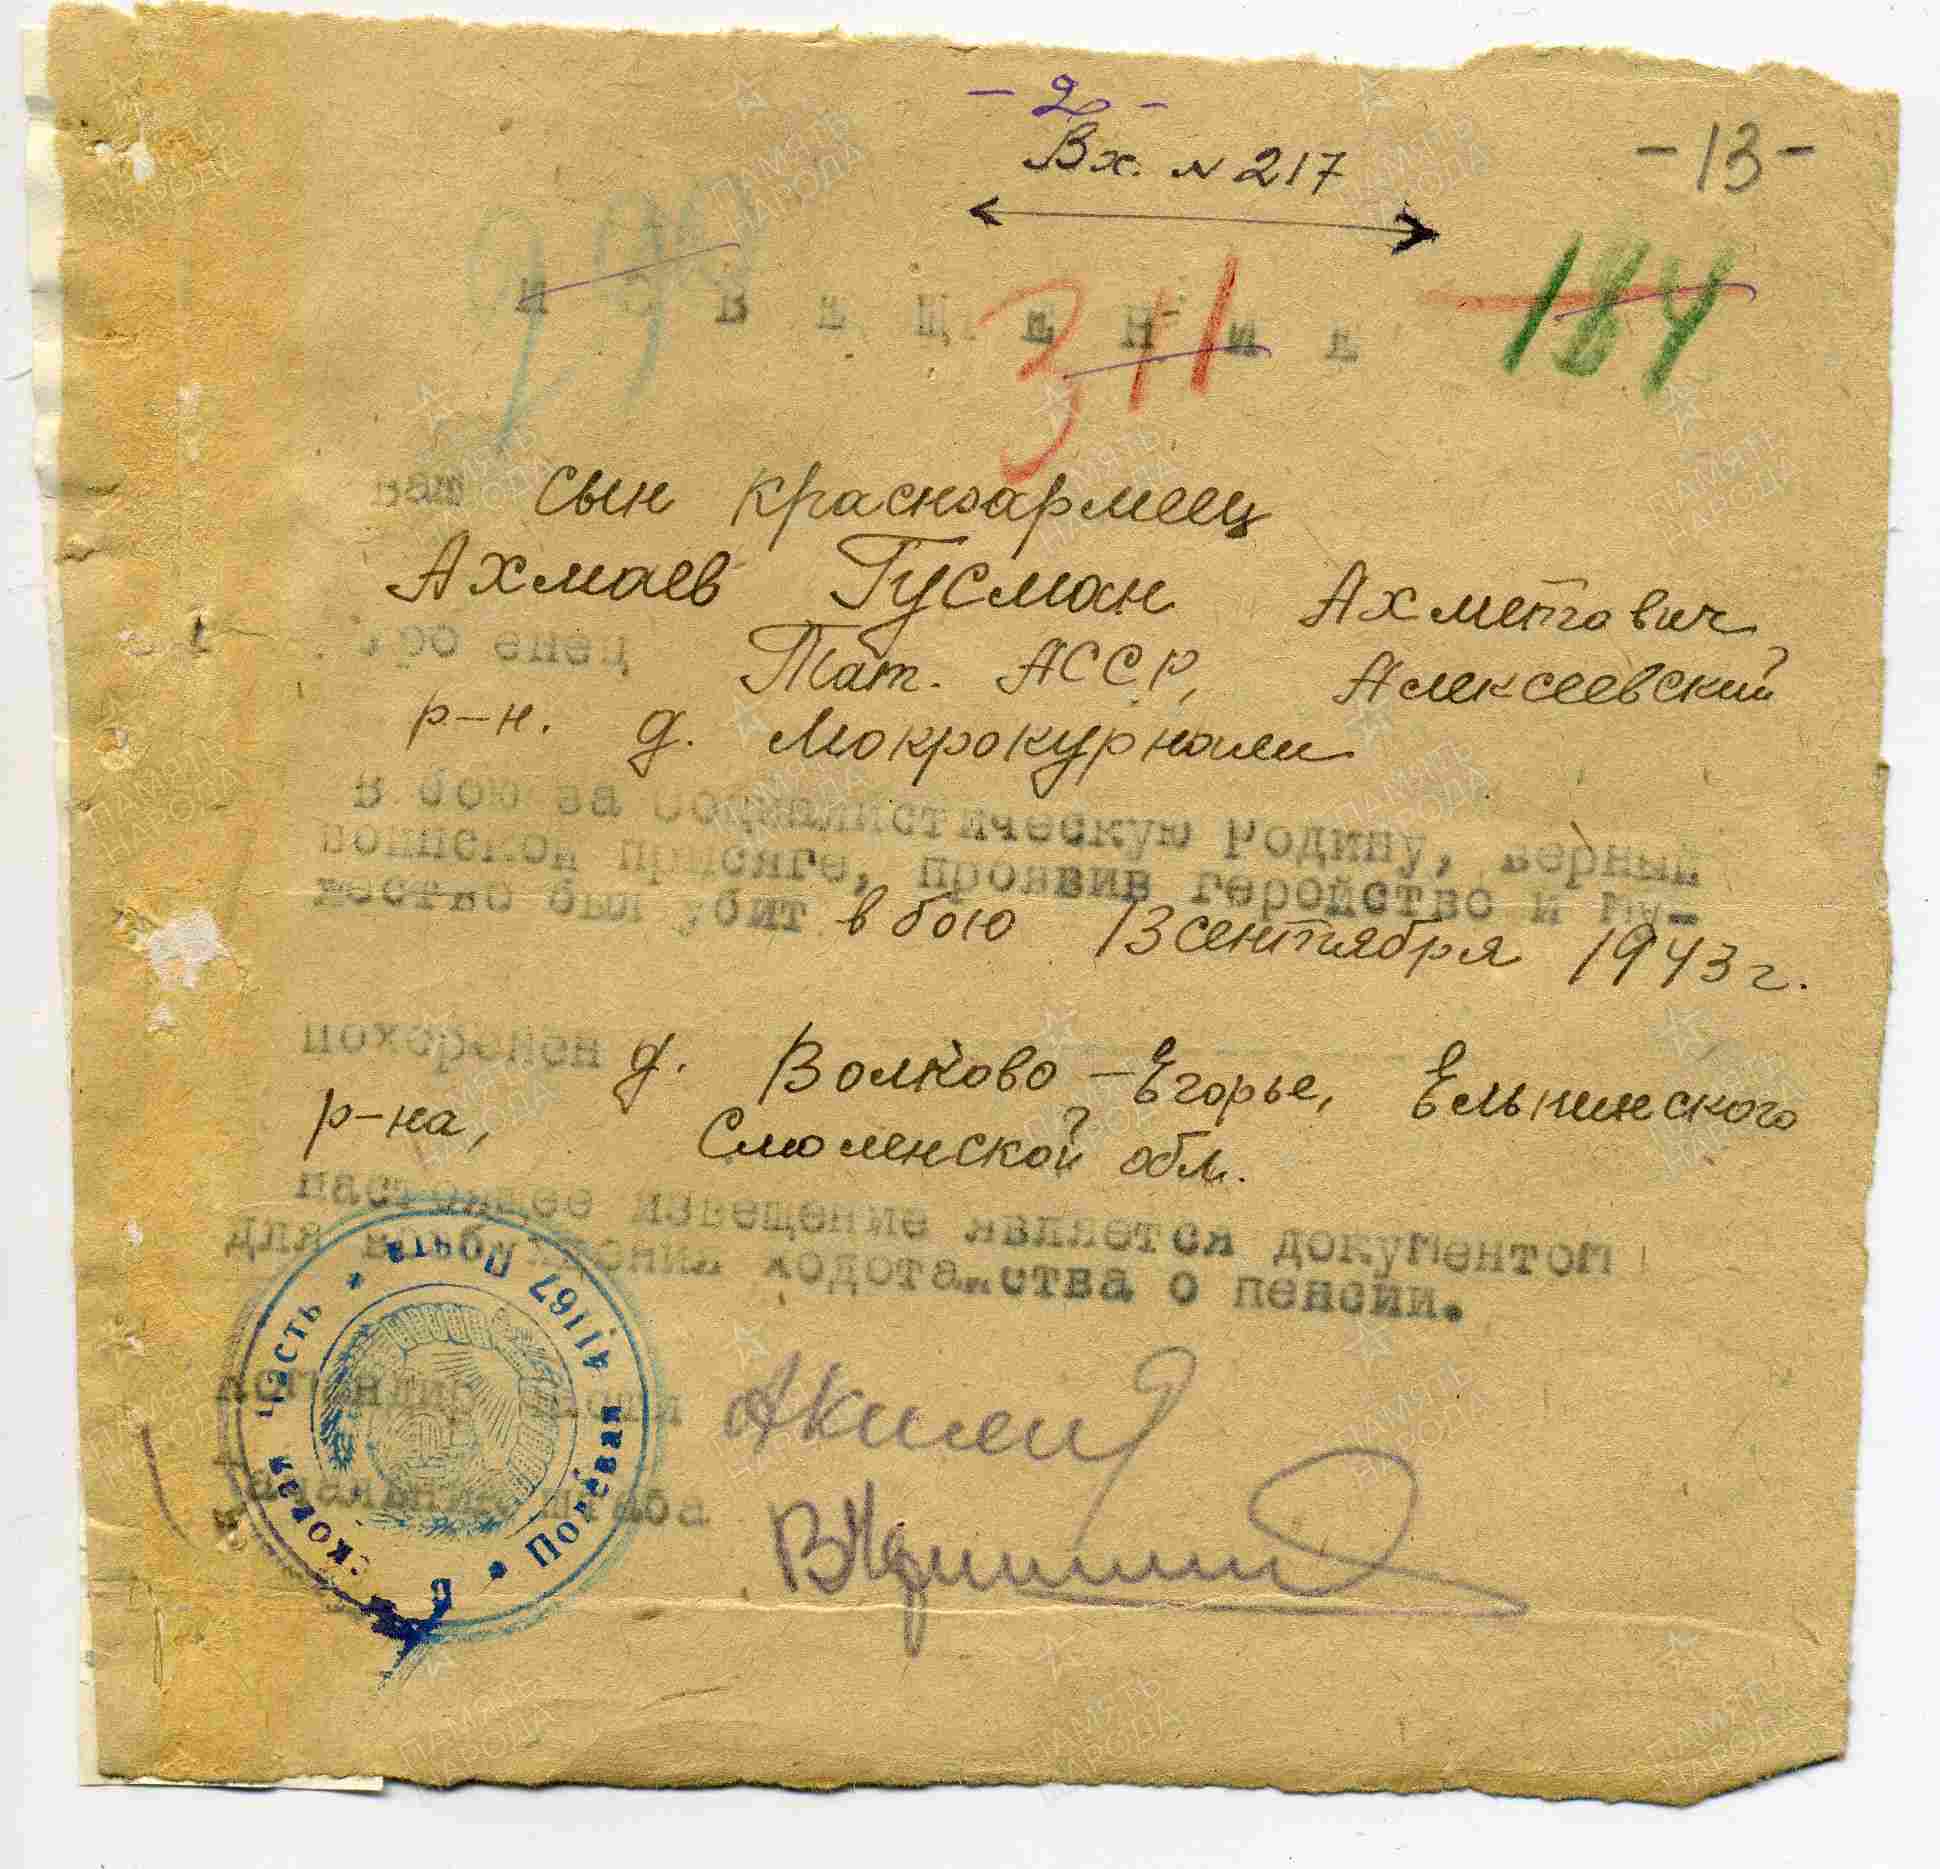 - 2 -
Вх. № 217
- 13 -
311
184
извещение
ваш сын красноармеец
Ахмаев Гусман Ахметович
Тат. АССР, Алексеевский
р-н. д. Мокрокурнали
в бою за социалистическую Родину, верный
воинской присяге, проявив геройство и му-
жество был убит в бою 13 сентября 1943 г.
похоронен д. Волково-Егорье, Ельнинского
р-на, Смоленской обл.
настоящее извещение является документом
для возбуждения ходотайства о пенсии.
командир части
начальник штаба
часть * Полевая Почта 41167 *
ПАМЯТЬ НАРОДА